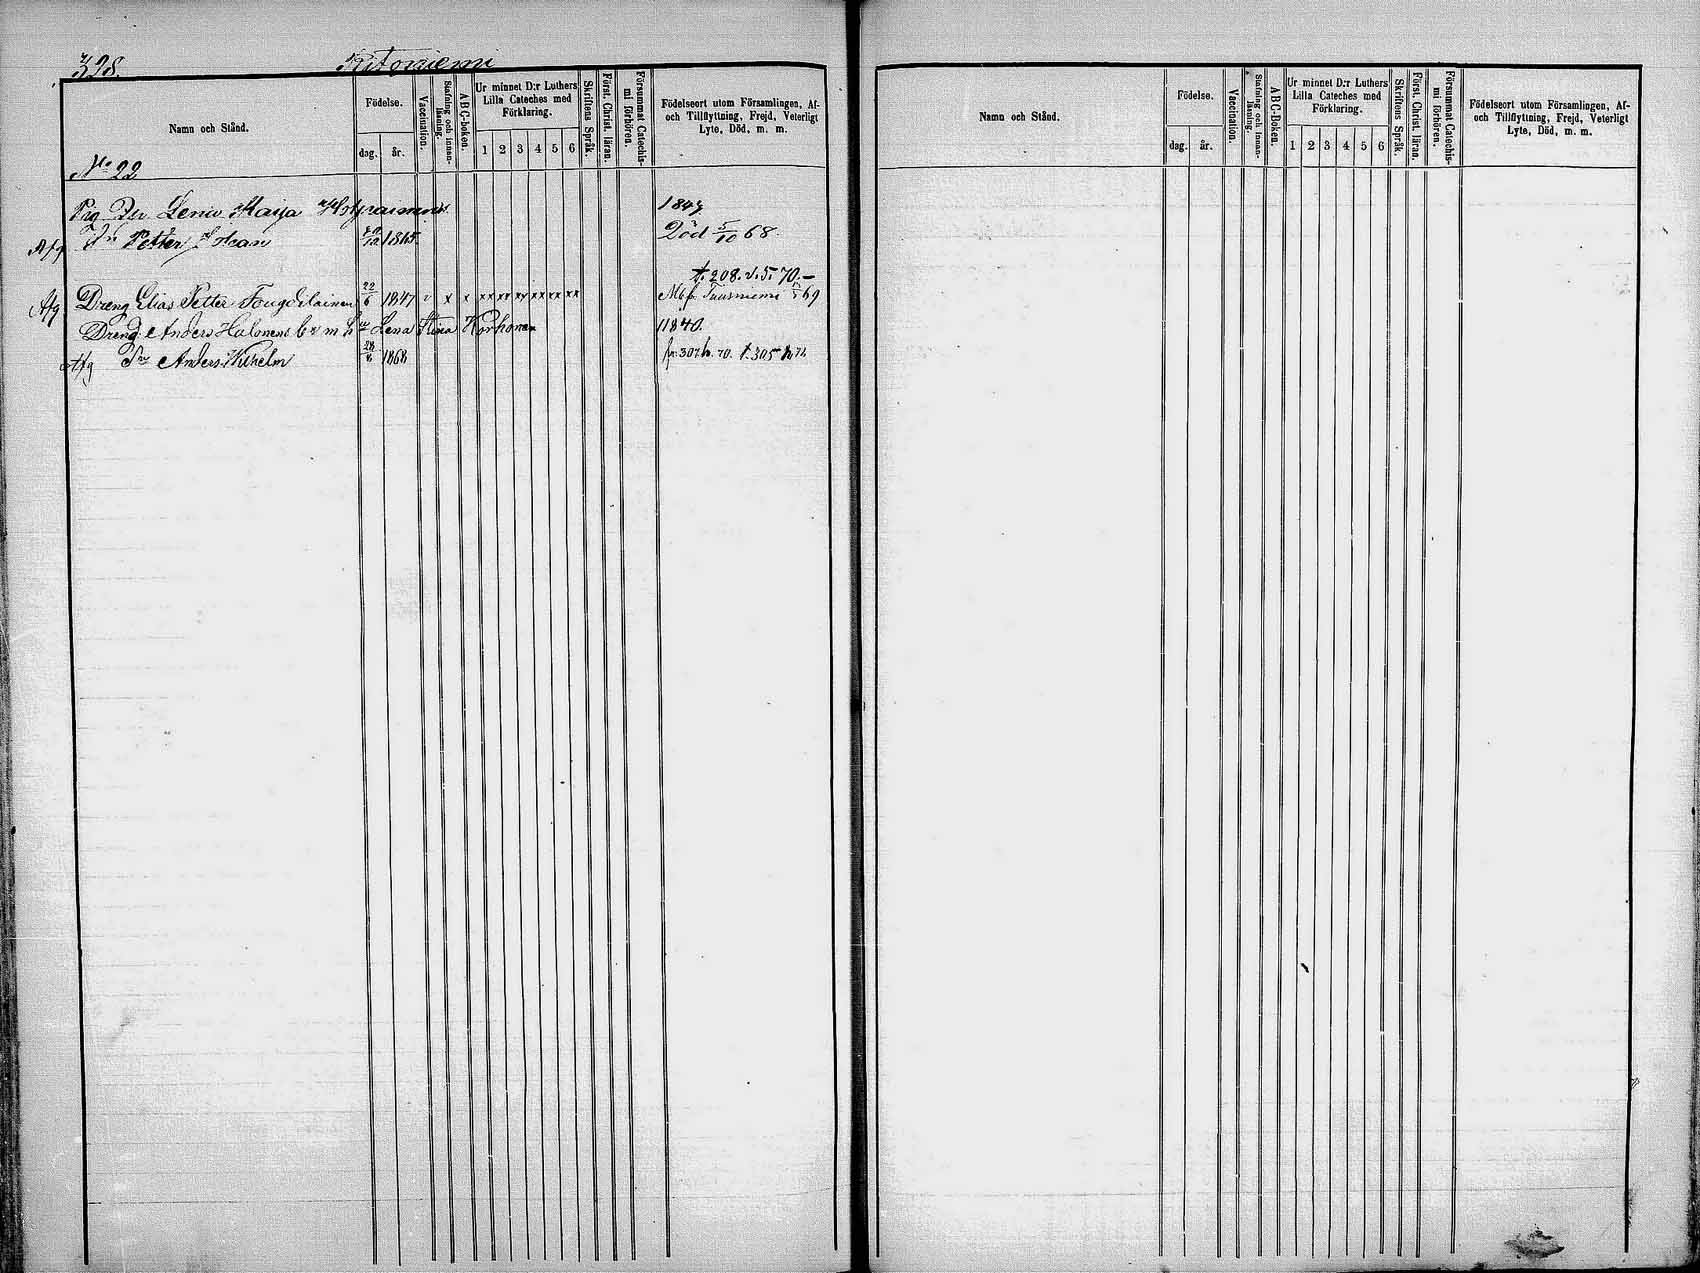 328.
Namn och Stånd.
Födelse.
dag.
år.
Vaccination.
Stafning och innan-
läsning.
ABC-boken.
Ur minnet D:r Luthers
Lilla Cateches med
Förklaring.
1 2 3 4 5 6
Skriftens Språk.
Först. Christ. läran.
Försummat Catechis-
mi förhören.
Födelseort utom Församlingen, Af-
och Tillflyttning, Frejd, Veterligt
Lyte, Död, m. m.
No 22
Pig Lena Kaija 1847.
Afg Petter Johan 1865 Död 5/10 68.
t. 208. v. 5. 70.
Afg Dreng Elias Petter 22/6 1847 v x x xx xx xx xx xx xx Tuusniemi 69
Dreng Anders Halonens Lena Stina Korhonen 1840.
Afg Anders Wilhelm 28/8 1868 fr. 307 70. t. 305 72
Namn och Stånd.
Födelse.
dag.
år.
Vaccination.
Stafning och innan-
läsning.
ABC-Boken.
Ur minnet D:r Luthers
Lilla Cateches med
Förklaring.
1 2 3 4 5 6
Skriftens Språk.
Först. Christ. läran.
Försummat Catechis-
mi förhören.
Födelseort utom Församlingen, Af-
och Tillflyttning, Frejd, Veterligt
Lyte, Död, m. m.